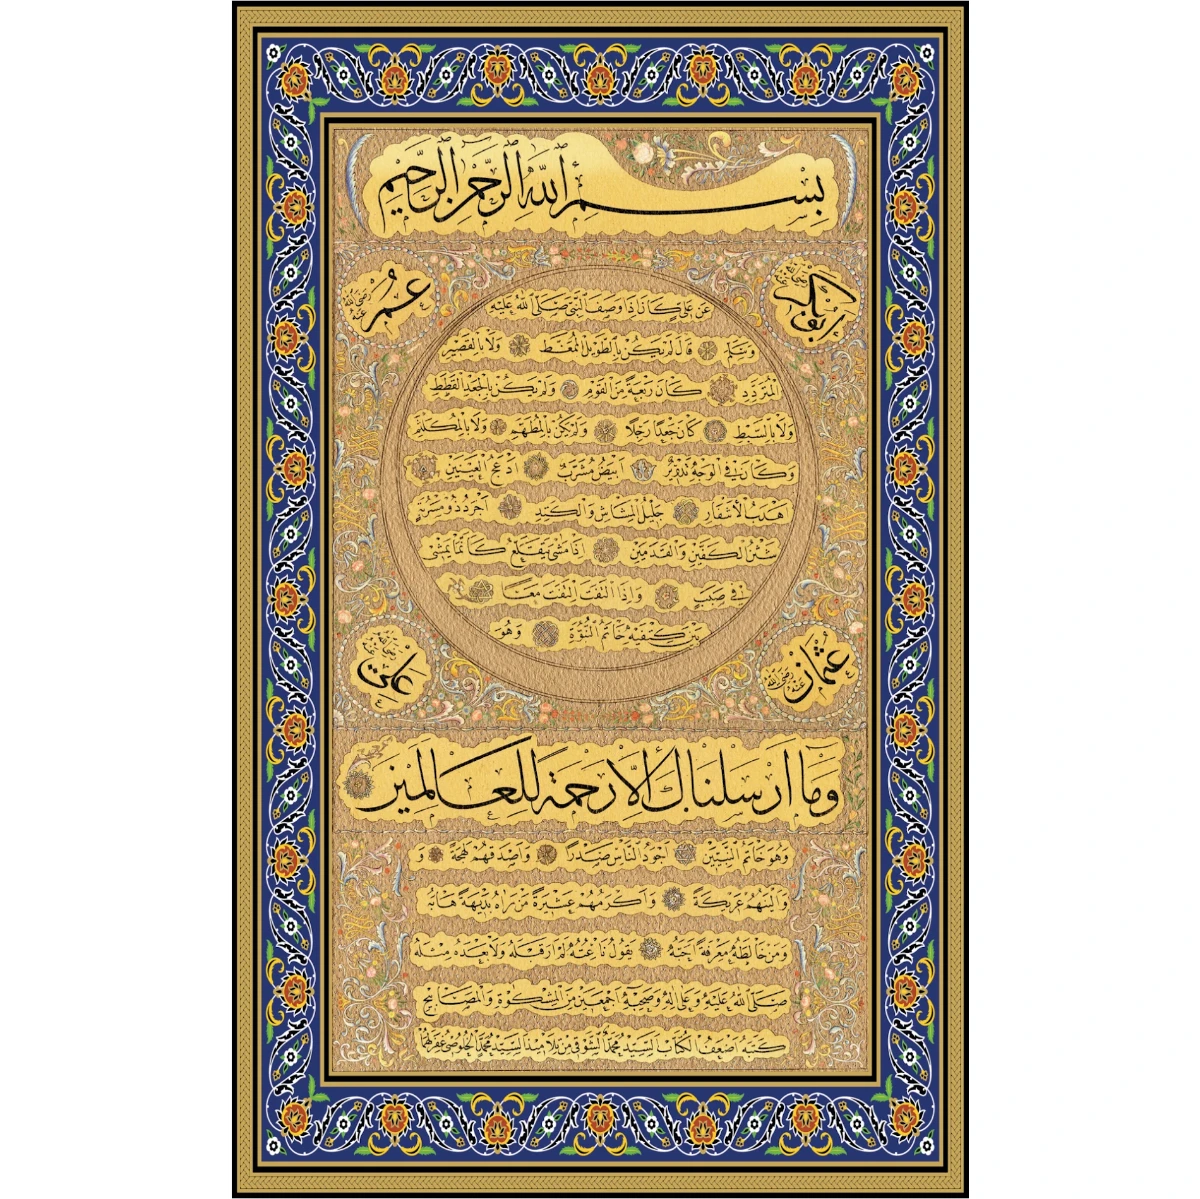 بسم الله الرحمن الرحيم
أبوبكر رضي الله عنه
عمر رضي الله عنه
عن علي كان اذا وصف النبي صلى الله عليه
وسلم قال لم يكن بالطويل الممغط ولا بالقصير
المتردد كان ربعة من القوم ولم يكن بالجعد القطط
ولا بالسبط كان جعدا رجلا ولم يكن بالمطهم ولا بالمكلثم
وكان في الوجه تدوير ابيض مشرب ادعج العينين
اهدب الأشفار جليل المشاش والكتد اجرد ذو مسربة
شثن الكفين والقدمين اذا مشى يتقلع كانما يمشي
في صبب واذا التفت التفت معا
بين كتفيه خاتم النبوة وهو
عثمان رضي الله عنه
علي رضي الله عنه
وما أرسلناك إلا رحمة للعالمين
وهو خاتم النبيين اجود الناس صدرا واصدقهم لهجة و
والينهم عريكة واكرمهم عشيرة من راه بديهة هابه
ومن خالطه معرفة احبه يقول ناعته لم ار قبله ولا بعده مثله
صلى الله عليه وعلى اله وصحبه اجمعين من المشكوة والمصابيح
كتبه اضعف الكتاب السيد محمد الشوقي من تلاميذ السيد محمد الخلوصي غفرلهما